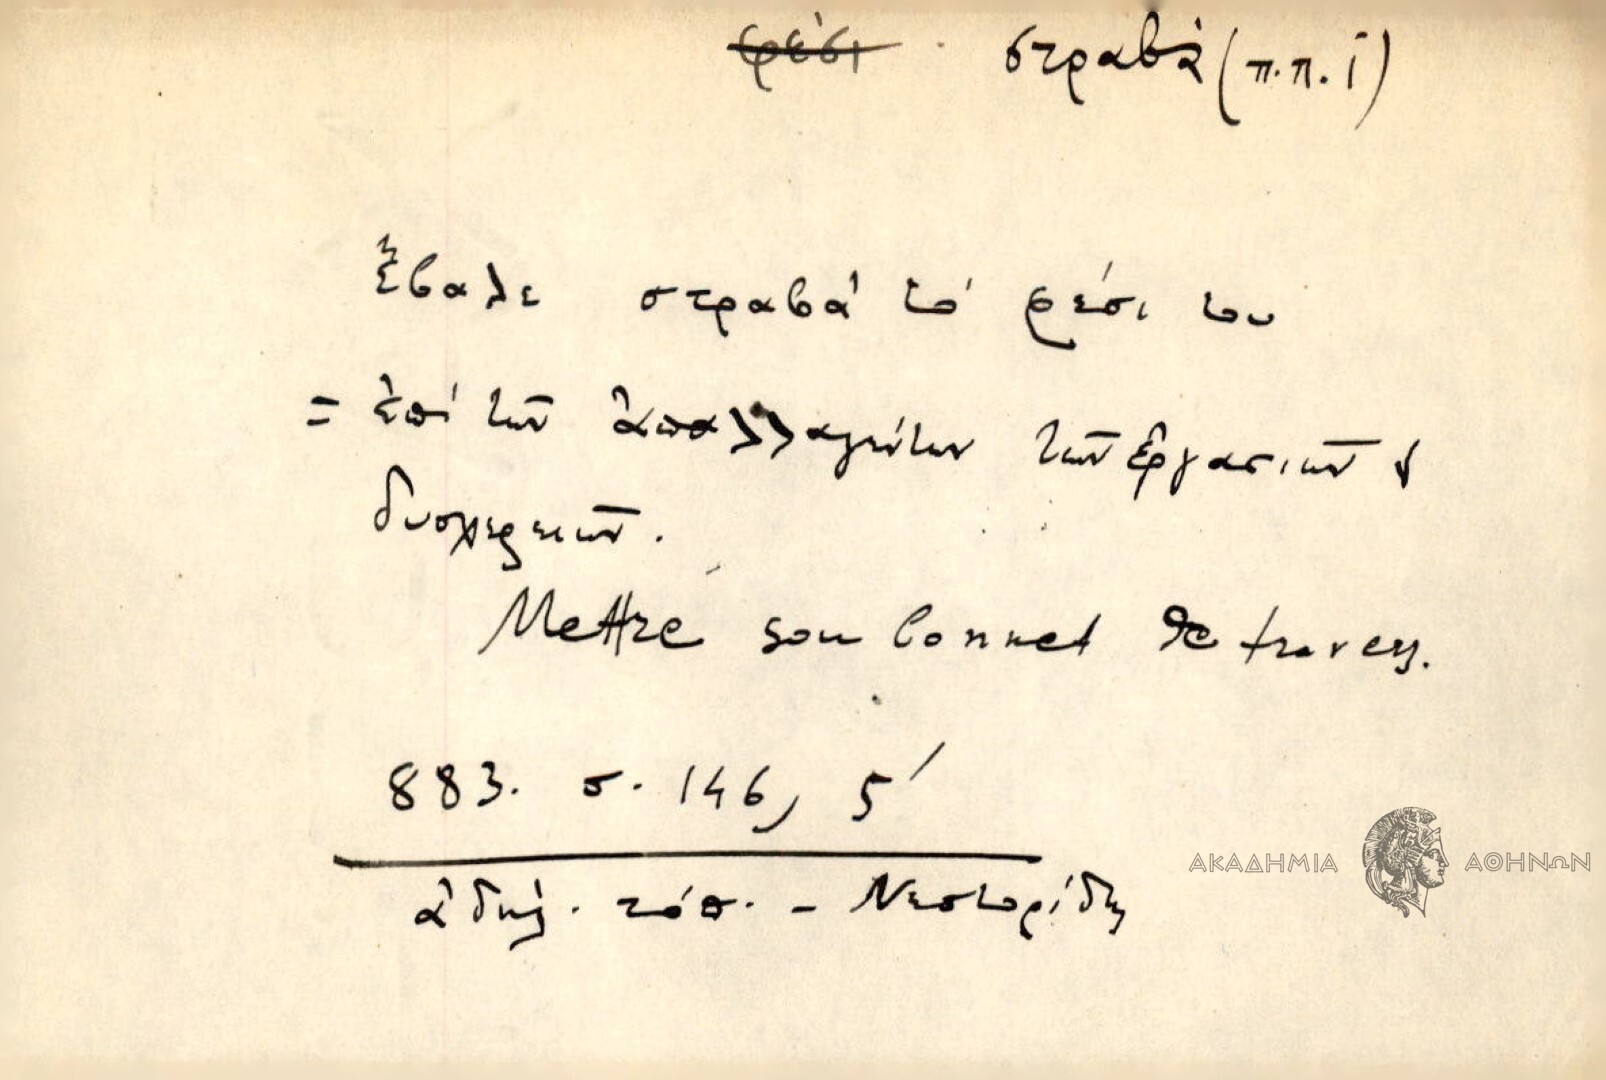 ~~φέσι~~ στραβά (π.π. ί)
Ἔβαλε στραβά τό φέσι του
= ἐπί τῶν ἀπαλλαγέντων τῶν ἐργασιῶν
δυσχερειῶν.
Mettre son bonnet de travers.
883. σ. 146, 5'
ἀδήλ. τόπ. - Νεστορίδης
ΑΚΑΔΗΜΙΑ ΑΘΗΝΩΝ